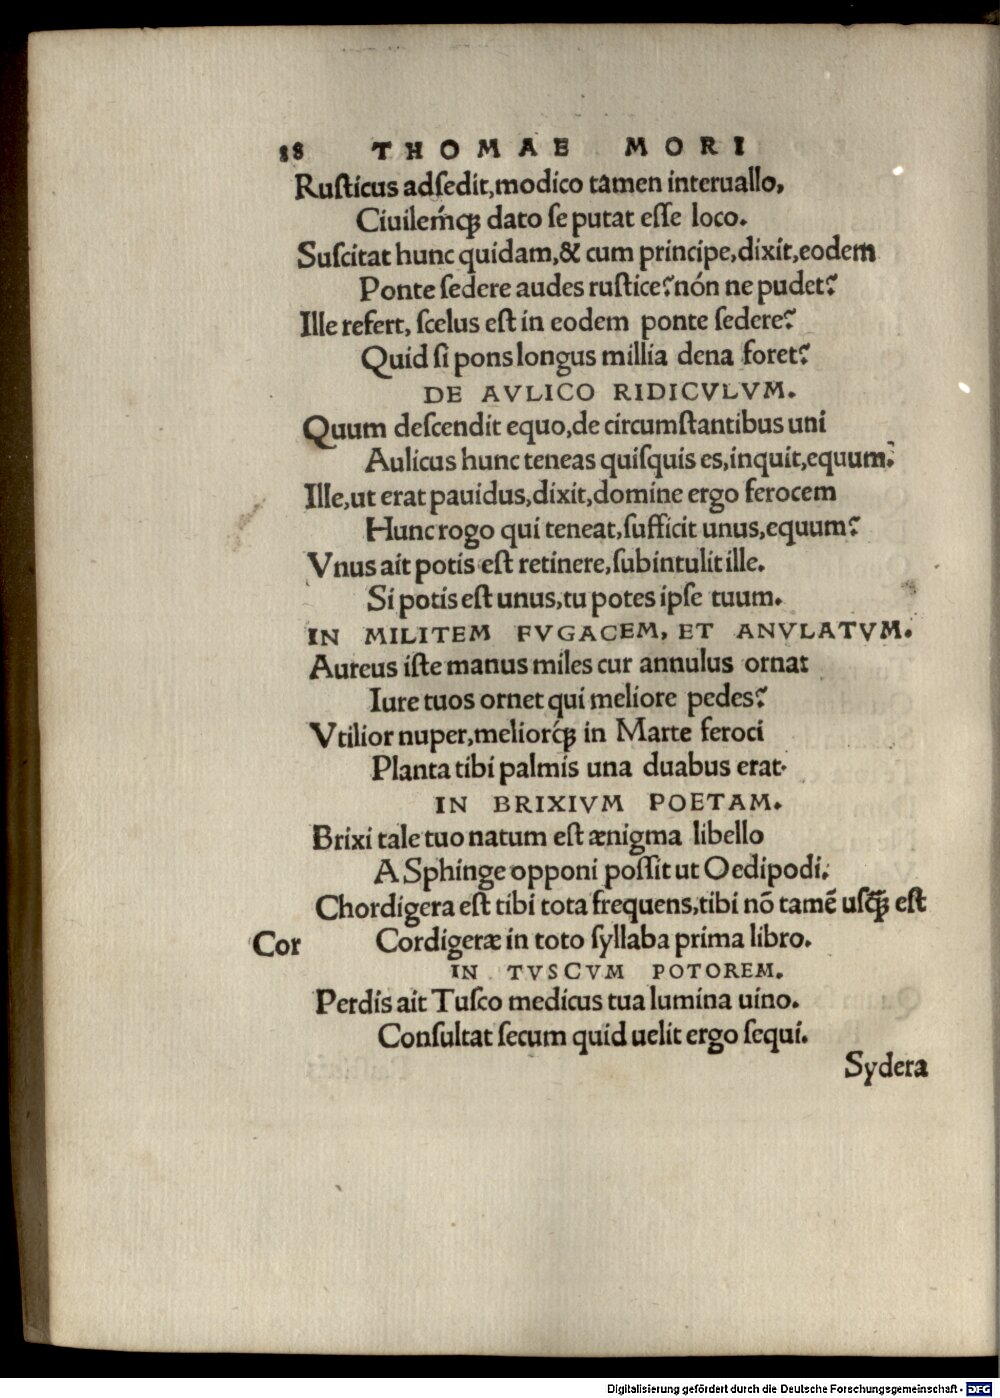 88 THOMAE MORI
Ruſticus adſedit,modico tamen interuallo,
Ciuileḿqꝫ dato ſe putat eſſe loco.
Suſcitat hunc quidam,& cum principe,dixit,eodem
Ponte ſedere audes ruſtice?nón ne pudet?
Ille refert, ſcelus eſt in eodem ponte ſedere?
Quid ſi pons longus millia dena foret?
DE AVLICO RIDICVLVM.
Quum deſcendit equo,de circumſtantibus uni
Aulicus hunc teneas quiſquis es,inquit,equum.
Ille,ut erat pauidus,dixit,domine ergo ferocem
Hunc rogo qui teneat,ſufficit unus,equum?
Vnus ait potis eſt retinere,ſubintulit ille.
Si potis eſt unus,tu potes ipſe tuum.
IN MILITEM FVGACEM, ET ANVLATVM.
Aureus iſte manus miles cur annulus ornat
Iure tuos ornet qui meliore pedes?
Vtilior nuper,meliorq́ꝫ in Marte feroci
Planta tibi palmis una duabus erat.
IN BRIXIVM POETAM.
Brixi tale tuo natum eſt ænigma libello
A Sphinge opponi poſſit ut Oedipodi.
Chordigera eſt tibi tota frequens,tibi nõ tamẽ uſqꝫ̃ eſt
Cor Cordigeræ in toto ſyllaba prima libro.
IN TVSCVM POTOREM.
Perdis ait Tuſco medicus tua lumina uino.
Conſultat ſecum quid uelit ergo ſequi.
Sydera
Digitalisierung gefördert durch die Deutsche Forschungsgemeinschaft - DFG